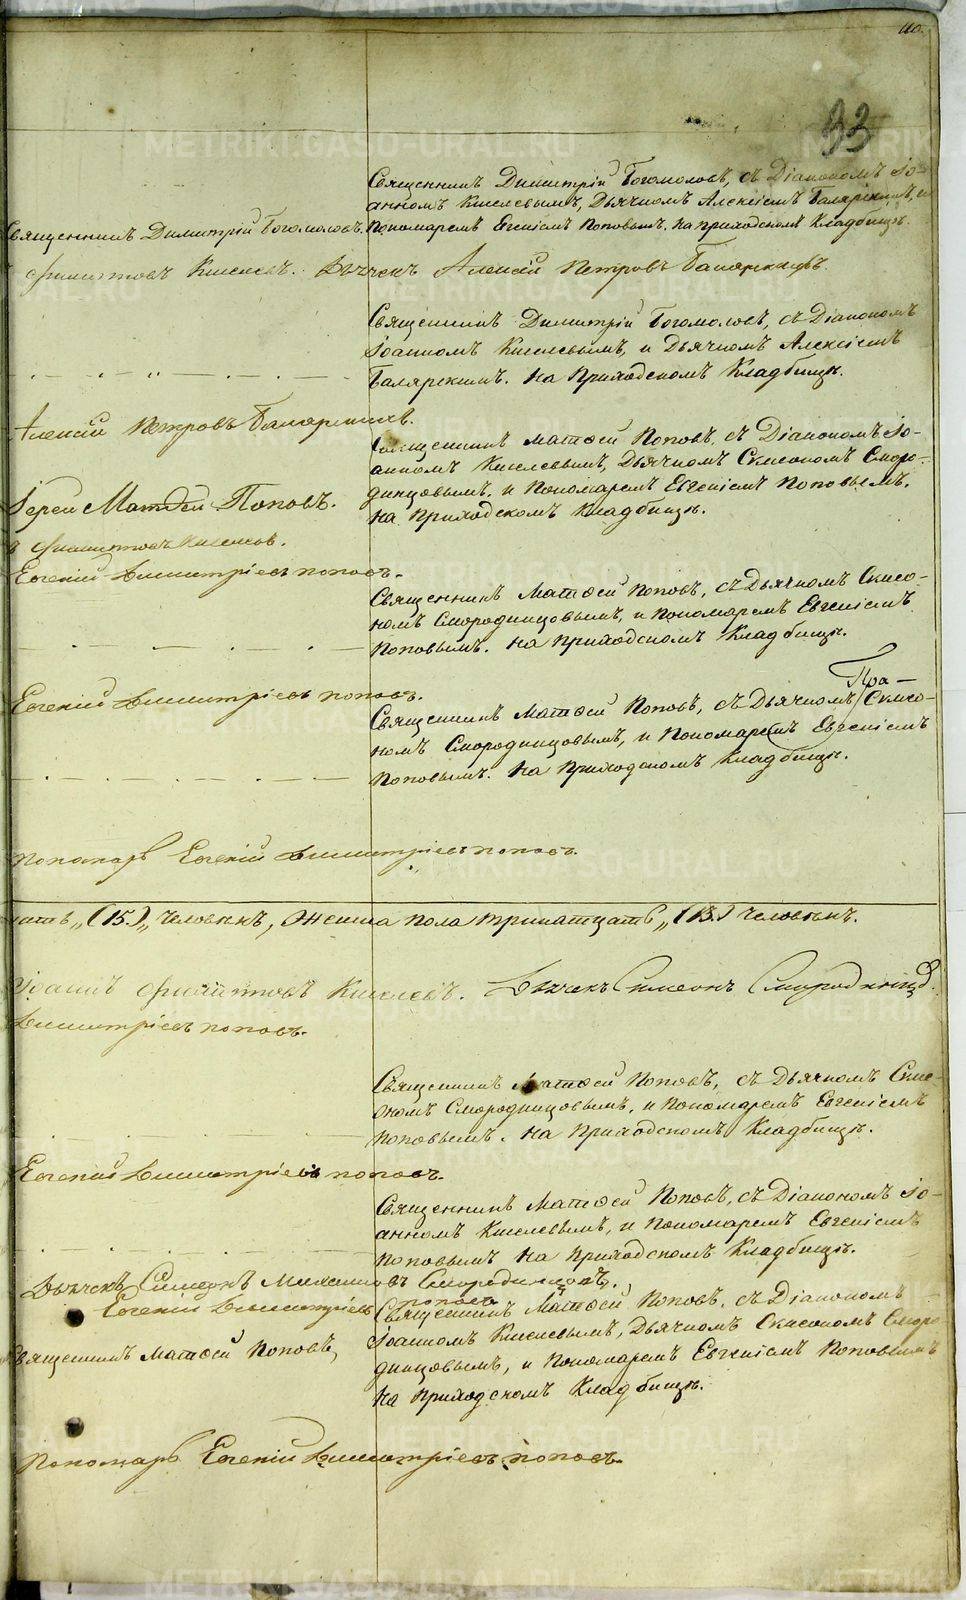 110.
93
Священникъ Димитрій Богомоловъ, съ Діакономъ Іо-
анномъ Киселевымъ, Дьячкомъ Алексіемъ Баляркинымъ, и
Священникъ Димитрій Богомоловъ. Пономаремъ Евгеніемъ Поповымъ. На приходскомъ Кладбищѣ.
Филитовъ Киселевъ. Дьячекъ Алексій Петровъ
Священникъ Димитрій Богомоловъ, съ Діакономъ
Іоанномъ Киселевымъ, и Дьячкомъ Алексіемъ
На Приходскомъ Кладбищѣ.
Алексій Петровъ
Священникъ Матѳей Поповъ, съ Діакономъ Іо-
анномъ Киселевымъ, Дьячкомъ Симеономъ Сморо-
Іерей Матѳей Поповъ. динцовымъ, и Пономаремъ Евгеніемъ Поповымъ.
На Приходскомъ Кладбищѣ.
Филитовъ Киселевъ.
Евгеній Димитріевъ Поповъ.
Священникъ Матѳей Поповъ, съ Дьячкомъ Симео-
номъ Смородинцовымъ, и Пономаремъ Евгеніемъ
Поповымъ. На Приходскомъ Кладбищѣ.
Пра-
Евгеній Димитріевъ Поповъ.
Священникъ Матѳей Поповъ, съ Дьячкомъ Симео-
номъ Смородинцовымъ, и Пономаремъ Евгеніемъ
Поповымъ. На Приходскомъ Кладбищѣ.
Пономарь Евгеній Димитріевъ Поповъ.
цать „(15.)„ Человѣкъ, Женска пола тринатцать „(13.) Человѣкъ.
Іоаннъ Филитовъ Киселевъ. Дьячекъ Симеонъ
Димитріевъ Поповъ.
Священникъ Матѳей Поповъ, съ Дьячкомъ Симе-
ономъ Смородинцовымъ, и Пономаремъ Евгеніемъ
Поповымъ. На Приходскомъ Кладбищѣ.
Евгеній Димитріевъ Поповъ.
Священникъ Матѳей Поповъ, съ Діакономъ Іо-
анномъ Киселевымъ, и Пономаремъ Евгеніемъ
Поповымъ На Приходскомъ Кладбищѣ.
Дьячекъ Симеонъ Смородинцовъ.
Евгеній Димитріевъ Поповъ
Священникъ Матѳей Поповъ, съ Діакономъ
Іоанномъ Киселевымъ, Дьячкомъ Симеономъ Сморо-
Священникъ Матѳей Поповъ, динцовымъ, и Пономаремъ Евгеніемъ Поповымъ
На Приходскомъ Кладбищѣ.
Пономарь Евгеній Димитріевъ Поповъ.
METRIKI.GASO-URAL.RU